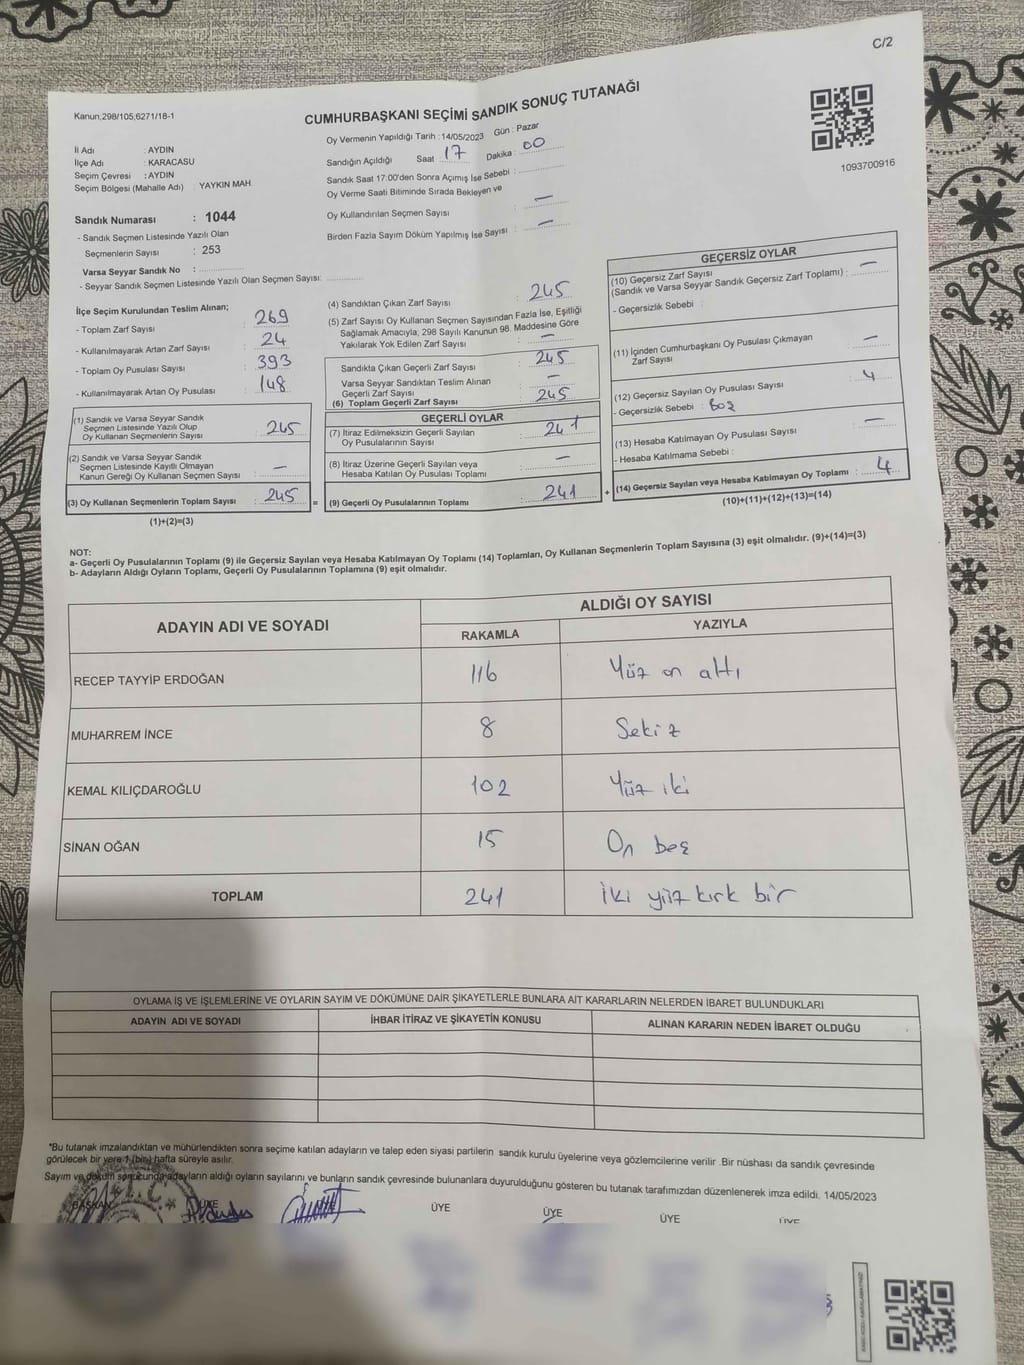 C/2
Kanun,298/105,6271/18-1
CUMHURBAŞKANI SEÇİMİ SANDIK SONUÇ TUTANAĞI
Oy Vermenin Yapıldığı Tarih : 14/05/2023 Gün : Pazar
Sandığın Açıldığı Saat 17 Dakika : 00
Sandık Saat 17:00'den Sonra Açımış İse Sebebi :
Oy Verme Saati Bitiminde Sırada Bekleyen ve
Oy Kullandırılan Seçmen Sayısı : —
Birden Fazla Sayım Döküm Yapılmış İse Sayısı : —
1093700916
İl Adı : AYDIN
İlçe Adı : KARACASU
Seçim Çevresi : AYDIN
Seçim Bölgesi (Mahalle Adı) : YAYKIN MAH.
Sandık Numarası : 1044
- Sandık Seçmen Listesinde Yazılı Olan
Seçmenlerin Sayısı : 253
Varsa Seyyar Sandık No :
- Seyyar Sandık Seçmen Listesinde Yazılı Olan Seçmen Sayısı:
İlçe Seçim Kurulundan Teslim Alınan;
- Toplam Zarf Sayısı : 269
- Kullanılmayarak Artan Zarf Sayısı : 24
- Toplam Oy Pusulası Sayısı : 393
- Kullanılmayarak Artan Oy Pusulası : 148
(1) Sandık ve Varsa Seyyar Sandık
Seçmen Listesinde Yazılı Olup
Oy Kullanan Seçmenlerin Sayısı : 245
(2) Sandık ve Varsa Seyyar Sandık
Seçmen Listesinde Kayıtlı Olmayan
Kanun Gereği Oy Kullanan Seçmen Sayısı : —
(3) Oy Kullanan Seçmenlerin Toplam Sayısı : 245 =
(1)+(2)=(3)
(4) Sandıktan Çıkan Zarf Sayısı : 245
(5) Zarf Sayısı Oy Kullanan Seçmen Sayısından Fazla İse, Eşitliği
Sağlamak Amacıyla; 298 Sayılı Kanunun 98. Maddesine Göre
Yakılarak Yok Edilen Zarf Sayısı : —
Sandıkta Çıkan Geçerli Zarf Sayısı : 245
Varsa Seyyar Sandıktan Teslim Alınan
Geçerli Zarf Sayısı : —
(6) Toplam Geçerli Zarf Sayısı : 245
GEÇERLİ OYLAR
(7) İtiraz Edilmeksizin Geçerli Sayılan
Oy Pusulalarının Sayısı : 241
(8) İtiraz Üzerine Geçerli Sayılan veya
Hesaba Katılan Oy Pusulası Toplamı : —
(9) Geçerli Oy Pusulalarının Toplamı : 241 +
GEÇERSİZ OYLAR
(10) Geçersiz Zarf Sayısı
(Sandık ve Varsa Seyyar Sandık Geçersiz Zarf Toplamı) : —
- Geçersizlik Sebebi :
(11) İçinden Cumhurbaşkanı Oy Pusulası Çıkmayan
Zarf Sayısı : —
(12) Geçersiz Sayılan Oy Pusulası Sayısı : 4
- Geçersizlik Sebebi : Boş
(13) Hesaba Katılmayan Oy Pusulası Sayısı : —
- Hesaba Katılmama Sebebi :
(14) Geçersiz Sayılan veya Hesaba Katılmayan Oy Toplamı : 4
(10)+(11)+(12)+(13)=(14)
NOT:
a- Geçerli Oy Pusulalarının Toplamı (9) ile Geçersiz Sayılan veya Hesaba Katılmayan Oy Toplamı (14) Toplamları, Oy Kullanan Seçmenlerin Toplam Sayısına (3) eşit olmalıdır. (9)+(14)=(3)
b- Adayların Aldığı Oyların Toplamı, Geçerli Oy Pusulalarının Toplamına (9) eşit olmalıdır.
ADAYIN ADI VE SOYADI ALDIĞI OY SAYISI
RAKAMLA YAZIYLA
RECEP TAYYİP ERDOĞAN 116 Yüz on altı
MUHARREM İNCE 8 Sekiz
KEMAL KILIÇDAROĞLU 102 Yüz iki
SİNAN OĞAN 15 On beş
TOPLAM 241 İki yüz kırk bir
OYLAMA İŞ VE İŞLEMLERİNE VE OYLARIN SAYIM VE DÖKÜMÜNE DAİR ŞİKAYETLERLE BUNLARA AİT KARARLARIN NELERDEN İBARET BULUNDUKLARI
ADAYIN ADI VE SOYADI İHBAR İTİRAZ VE ŞİKAYETİN KONUSU ALINAN KARARIN NEDEN İBARET OLDUĞU
*Bu tutanak imzalandıktan ve mühürlendikten sonra seçime katılan adayların ve talep eden siyasi partilerin sandık kurulu üyelerine veya gözlemcilerine verilir .Bir nüshası da sandık çevresinde
görülecek bir yere 1 (bir) hafta süreyle asılır.
Sayım ve döküm sonucunda adayların aldığı oyların sayılarını ve bunların sandık çevresinde bulunanlara duyurulduğunu gösteren bu tutanak tarafımızdan düzenlenerek imza edildi. 14/05/2023
BAŞKAN ÜYE ÜYE ÜYE ÜYE ÜYE